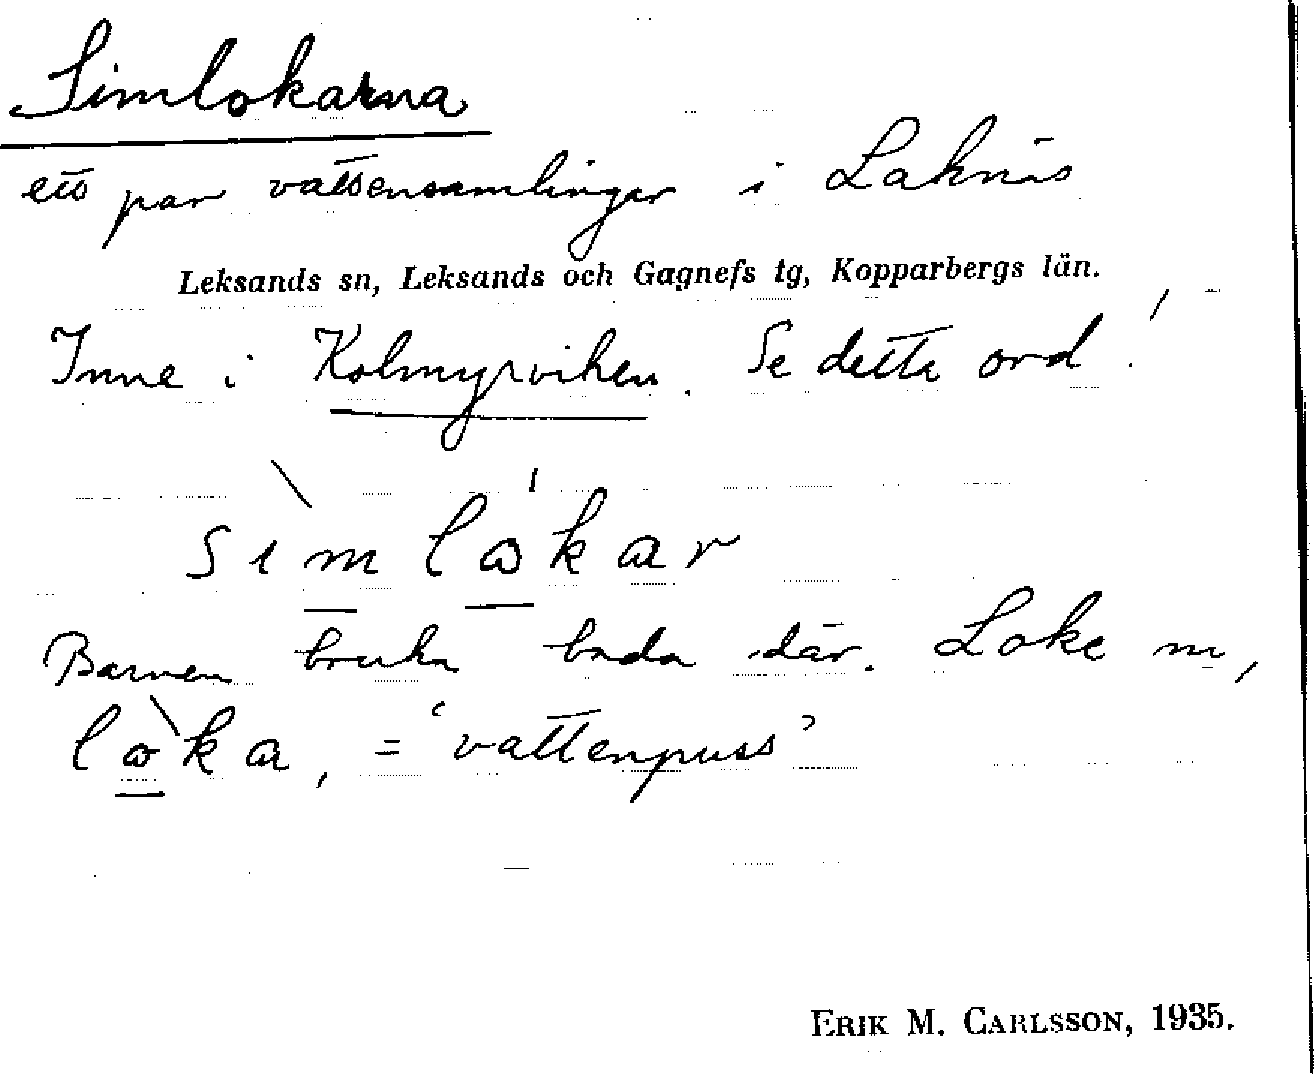 Simlokarna
ett par vattensamlingar i Laknäs
Leksands sn, Leksands och Gagnefs tg, Kopparbergs län.
Inne i Kolmyrviken. Se detta ord!
simlωkar
Barnen bruka bada där. Loke m,
lωka, = 'vattenpuss'
ERIK M. CARLSSON, 1935.